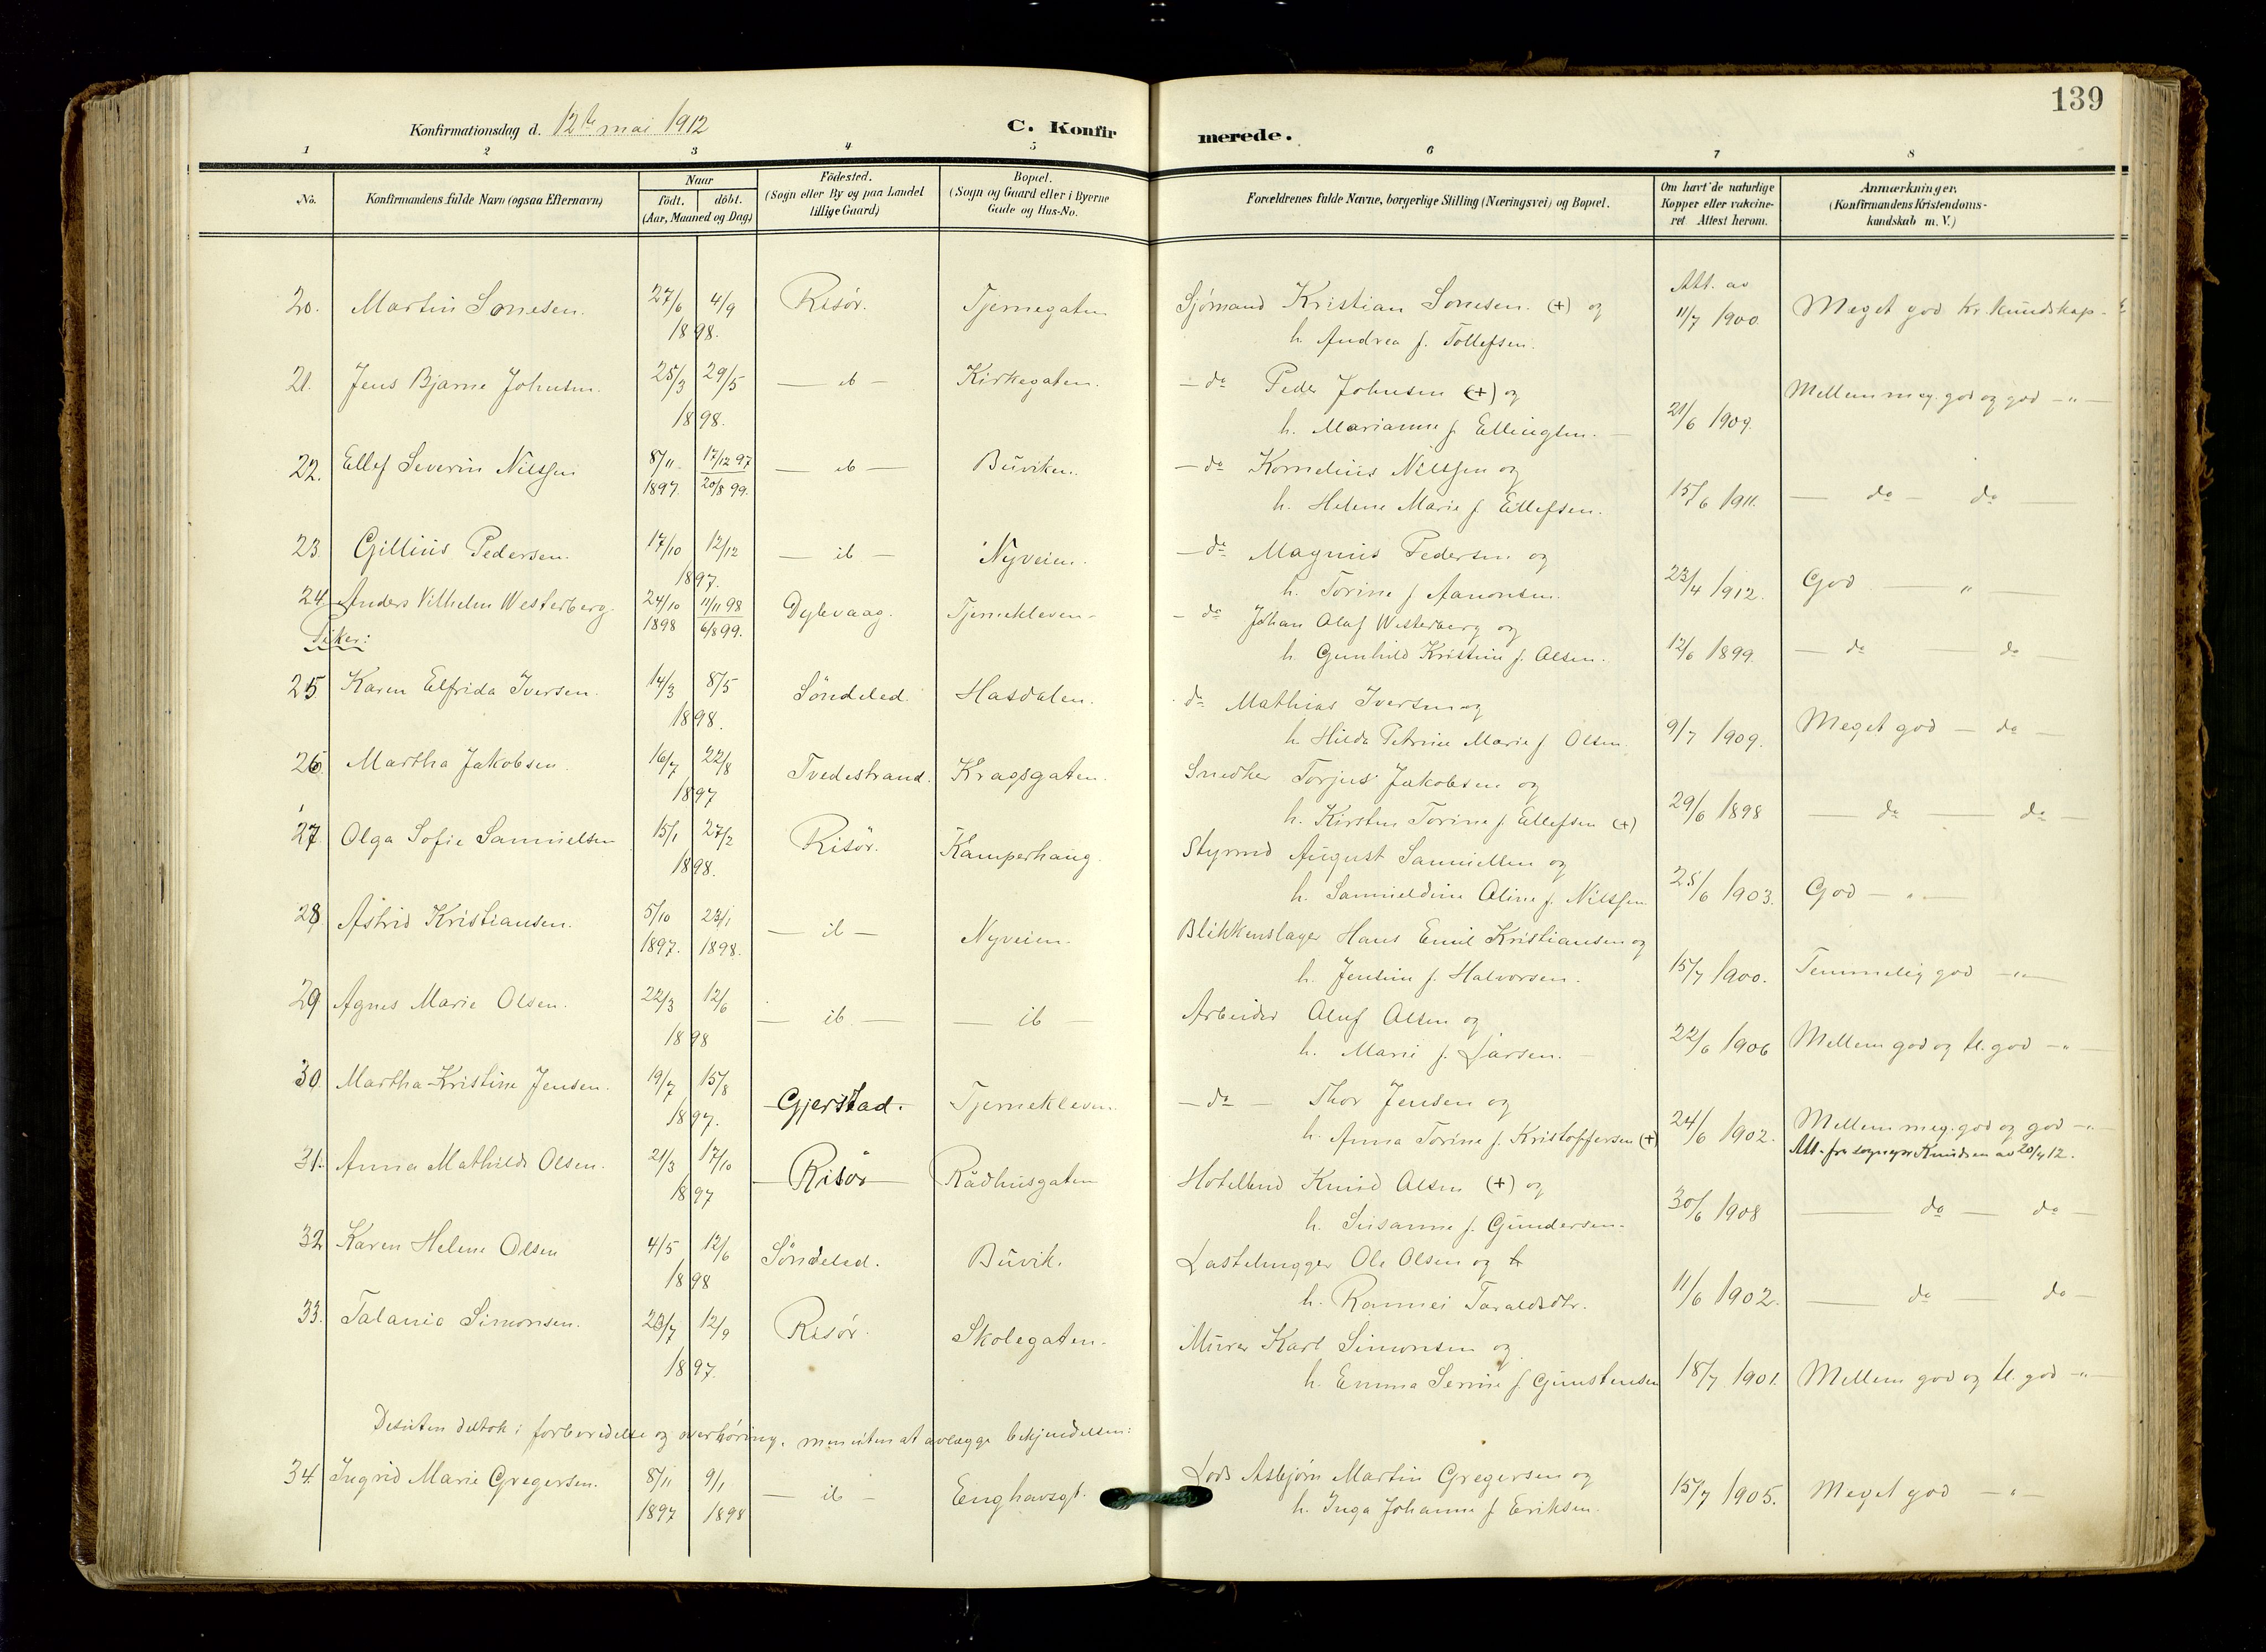 139
Konfirmationsdag d. 12te mai 1912
C. Konfirmerede.
1 2 3 4 5 6 7 8
No.
Konfirmandens fulde Navn (ogsaa Efternavn)
Naar
födt. döbt.
(Aar, Maaned og Dag)
Födested.
(Sogn eller By og paa Landet
tillige Gaard)
Bopæl.
(Sogn og Gaard eller i Byerne
Gade og Hus-No.
Forældrenes fulde Navne, borgerlige Stilling (Næringsvei) og Bopæl.
Om havt de naturlige
Kopper eller vakcine-
ret Attest herom.
Anmærkninger.
(Konfirmandens Kristendoms-
kundskab m. V.)
20. Martin Sørnesen. 27/6 4/9 Risør. Tjernegaten Sjømand Kristian Sørnesen (+) og Att. av 11/7 1900. Meget god kr. kundskap.
1898. h. Andrea f. Tollefsen.
21. Jens Bjarne Johnsen. 25/3 29/5 — ib — Kirkegaten. — do Peder Johnsen (+) og 21/6 1909. Mellem meg. god og god — " —
1898. h. Marianne f. Ellingsen. —
22. Ellef Severin Nilssen 8/11 17/12 97 — ib — Buviken. — do Kornelius Nilssen og 15/6 1911. — do — do —
1897. 20/8 99. h. Helene Marie f. Ellefsen.
23. Gillius Pedersen. 17/10 12/12 — ib — Nyveien. — do Magnus Pedersen og 23/4 1912. God — " —
1897. h. Torine f. Aanonsen.
24. Anders Vilhelm Westerberg. 24/10 11/11 98 Dybvaag. Tjernekleven — do Johan Olaf Westerberg og 12/6 1899. — do — do —
1898 6/8 99. h. Gunhild Kristine f. Olsen.
Piker:
25 Karen Elfrida Iversen. 14/3 8/5 Söndeled. Hasdalen. do Mathias Iversen og 9/7 1909. Meget god — do —
1898. h. Hilda Petrine Marie f. Olsen
26. Martha Jakobsen. 16/7 22/8 Tvedestrand. Kragsgaten. Snedker Torjus Jakobsen og 29/6 1898 — do — do —
1897 h. Kirsten Torine f. Ellefsen (+)
27. Olga Sofie Samuelsen 15/1 27/2 Risör. Kamperhaug. Styrmd August Samuelsen og 25/6 1903. God — " —
1898. h. Samueldine Oline f. Nilssen
28. Astrid Kristiansen. 5/10 23/1 — ib — Nyveien. Blikkenslager Hans Emil Kristiansen og 15/7 1900. Temmelig god — " —
1897. 1898. h. Jensine f. Halvorsen.
29. Agnes Marie Olsen. 22/3 12/6 — ib — — ib — Arbeider Oluf Olsen og 22/6 1906 Mellem god og tl. god — " —
1898 h. Marie f. Larsen. —
30 Martha Kristine Jensen. 19/7 15/8 Gjerstad. Tjernekleven. — do — Thor Jensen og 24/6 1902. Mellem meg. god og god — " —
1897. h. Anna Torine f. Kristoffersen (+) Att. fra sognepr. Knudsen av 20/4 12.
31. Anna Mathilde Olsen. 21/3 17/10 Risör Rådhusgaten Hotelbud Knud Olsen (+) og 30/6 1908 — do — do —
1897 h. Susanne f. Gundersen.
32 Karen Helene Olsen 4/5 12/6 Söndeled. Buvik. Lastehugger Ole Olsen og 11/6 1902. — do — do —
1898 h. Rannei Taraldsdtr.
33. Talanie Simonsen. 23/7 12/9 Risør. Skolegaten. Murer Karl Simonsen og 18/7 1901. Mellem god og tl. god — " —
1897. h. Emma Serine f. Gunstensen
Desuten deltok i forberedelse og overhöring, men uten at avlægge bekjendelsen:
34. Ingrid Marie Gregersen. 8/11 9/1 — ib — Enghavsgt. Lods Asbjørn Martin Gregersen og 15/7 1905. Meget god — " —
1897 1898 h. Inga Johanne f. Eriksen.